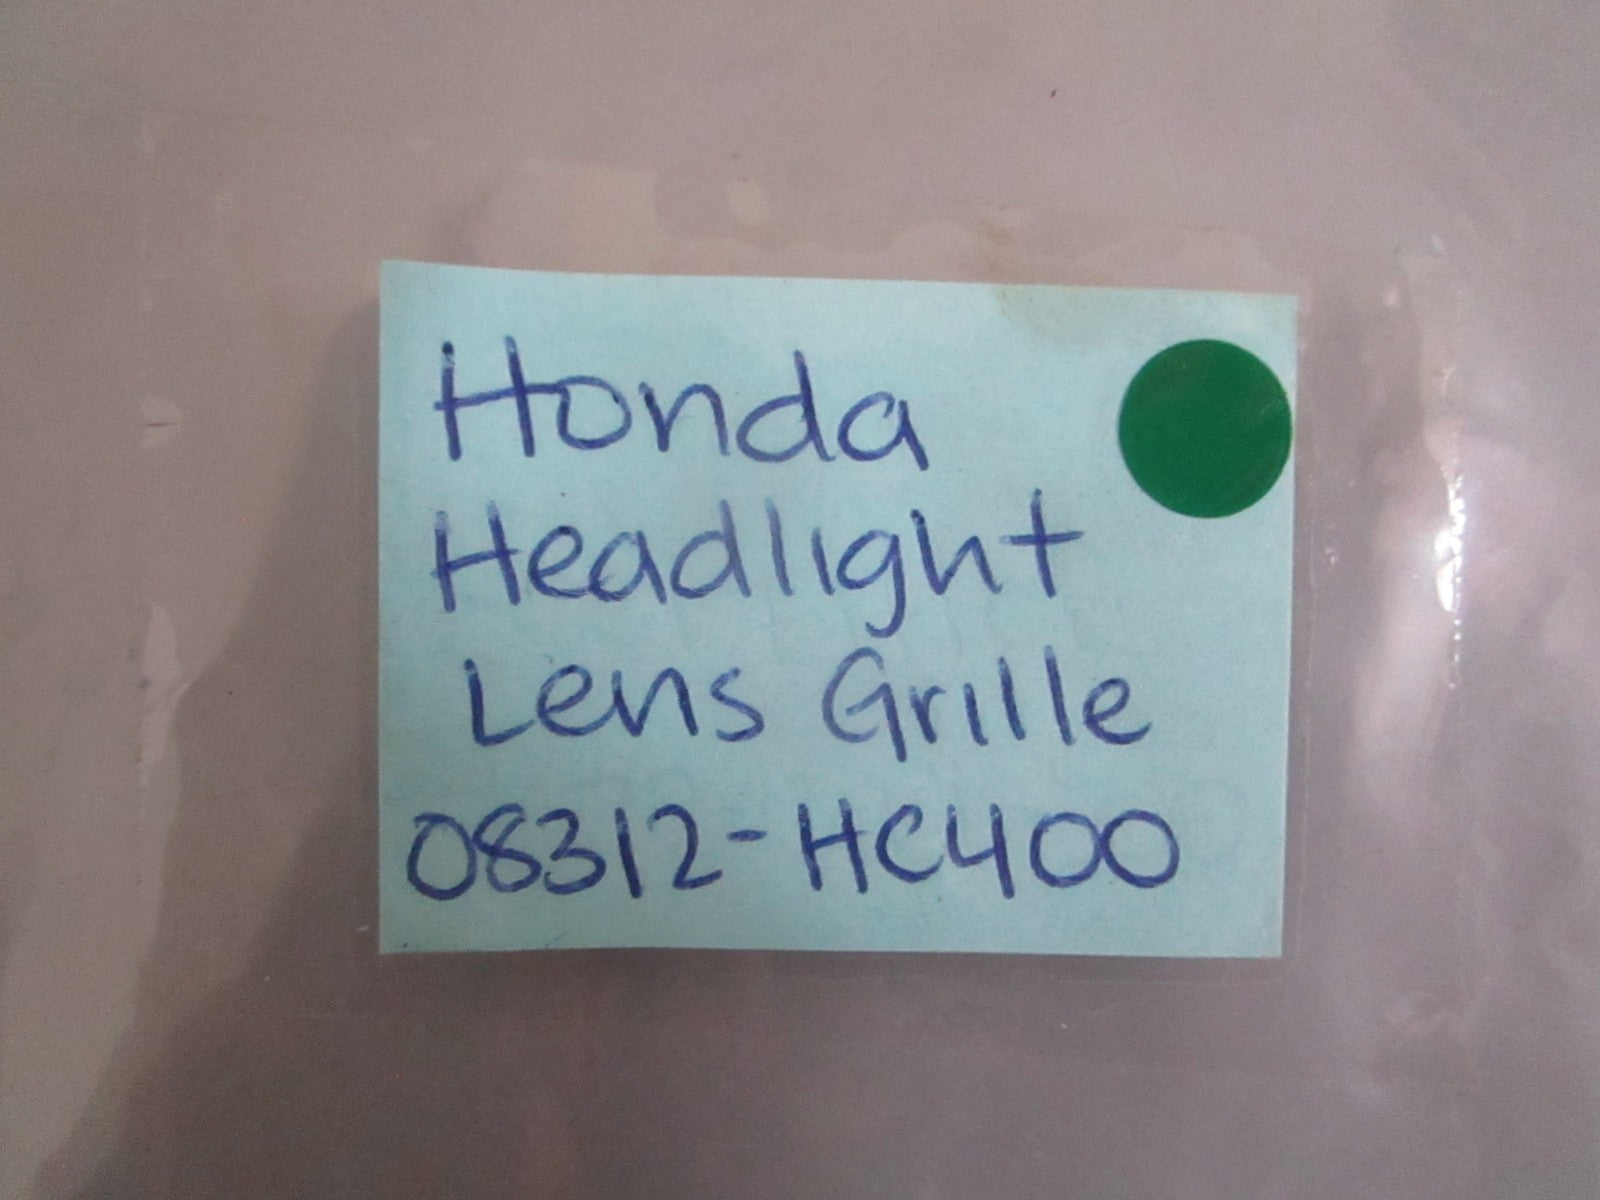 Honda
Headlight
Lens Grille
08312-HC400